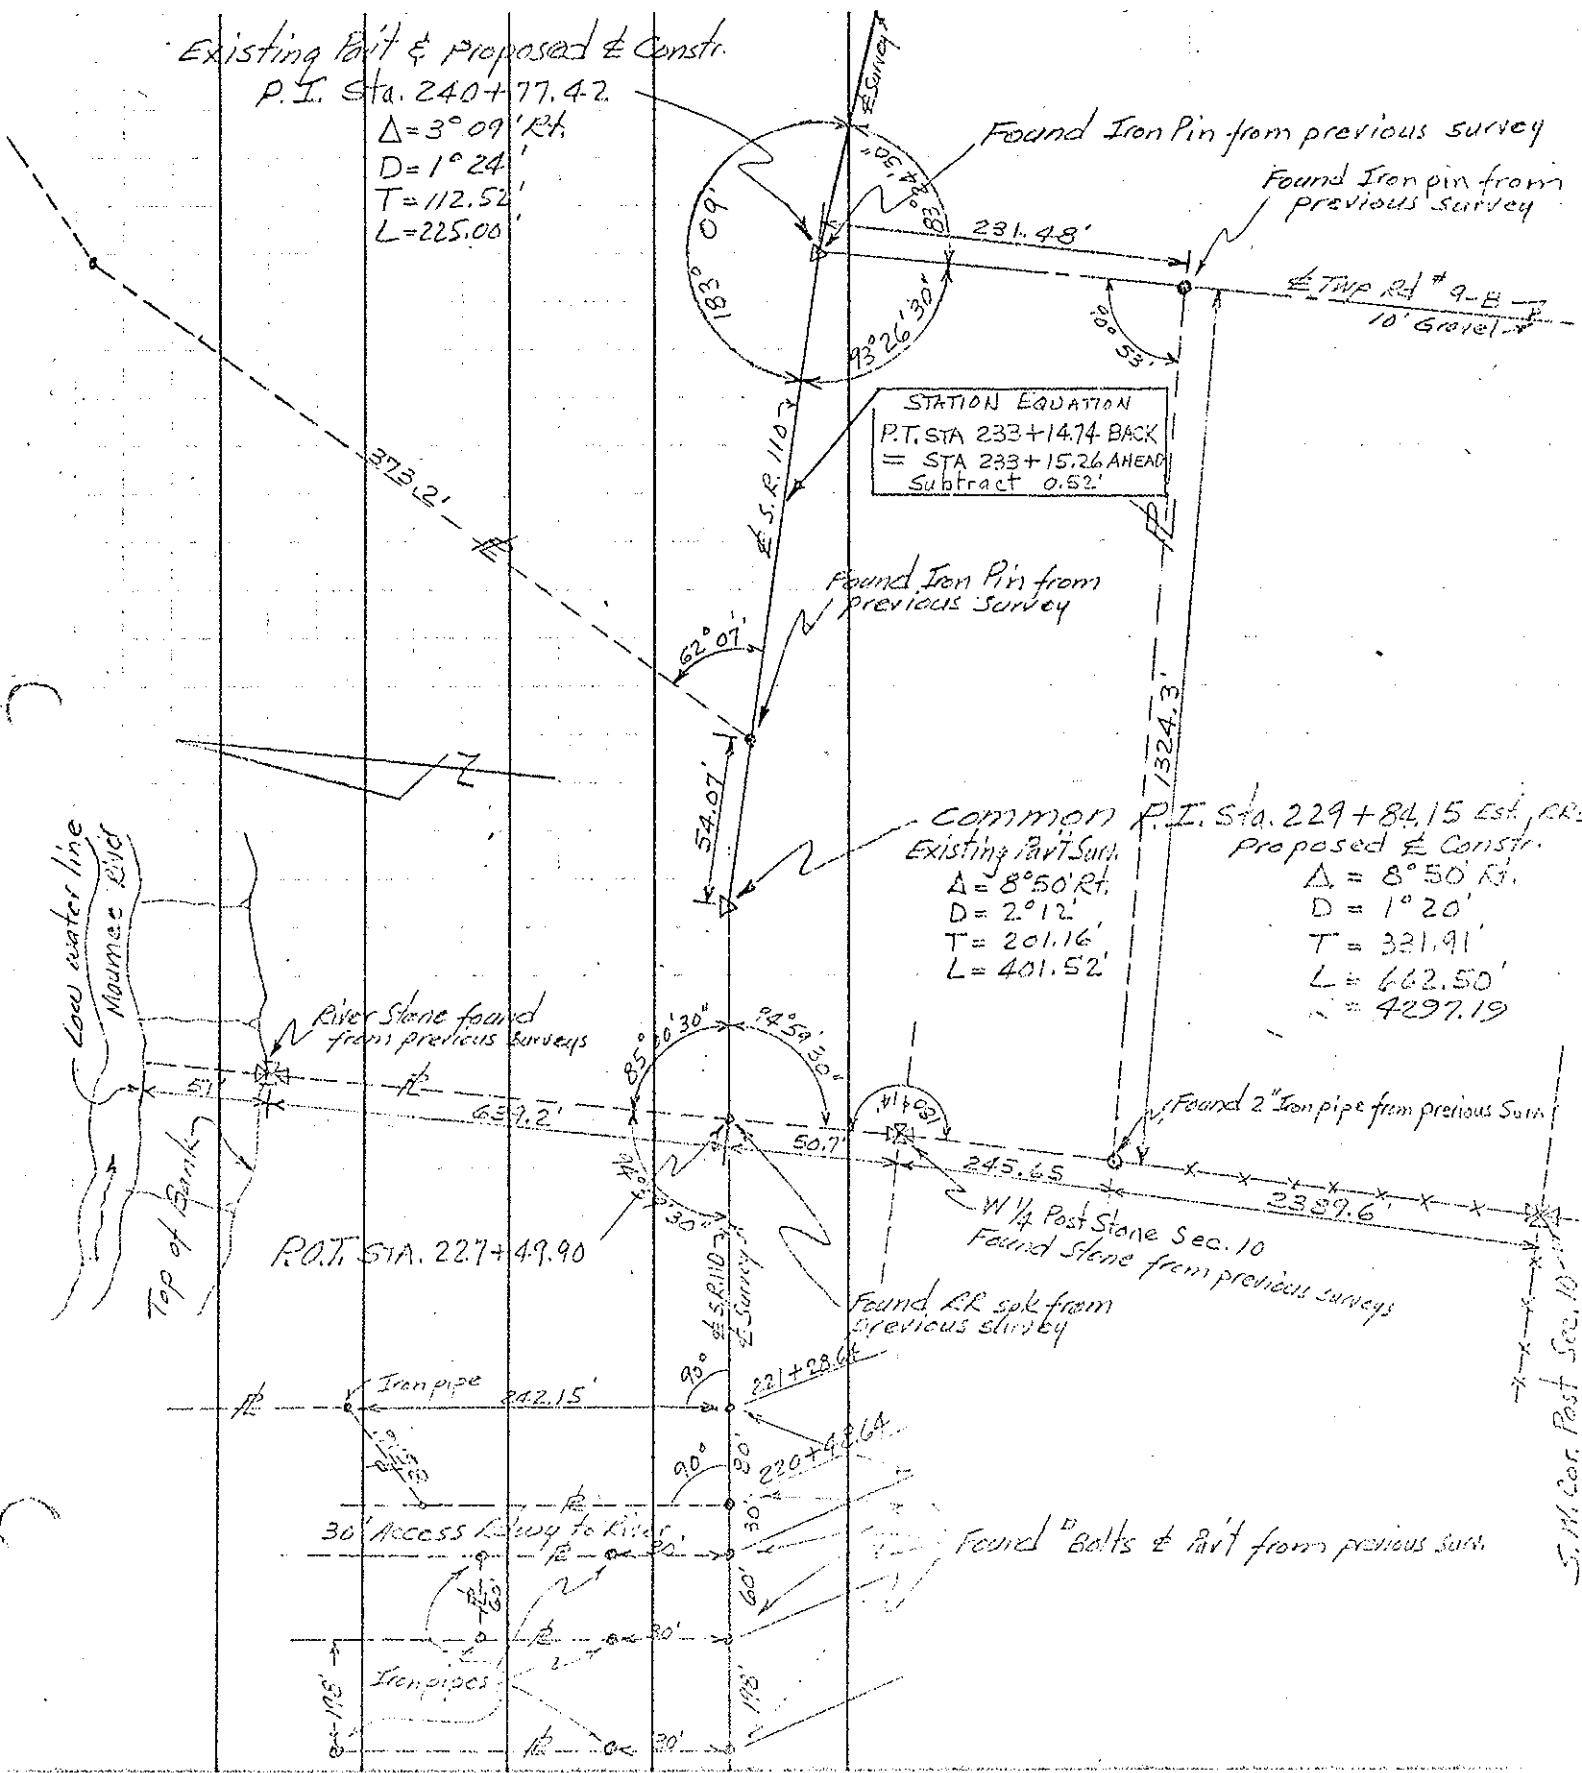 Existing Pav't & Proposed ℄ Constr.
P.I. Sta. 240+77.42
Δ=3°09' Rt.
D=1°24'
T=112.52'
L=225.00'
℄ Survey
Found Iron Pin from previous survey
Found Iron pin from
previous survey
83°24'30"
231.48'
183° 09'
93°26'30"
90° 53'
℄ Twp Rd # 9-B
10' Gravel
STATION EQUATION
P.T. STA 233+14.74 BACK
= STA 233+15.26 AHEAD
Subtract 0.52'
℄ S.R. 110
373.2'
Found Iron Pin from
previous survey
62°07'
1324.3'
54.07'
Common P.I. Sta. 229+84.15
Existing Pav't Surv.
Δ = 8°50' Rt.
D = 2°12'
T = 201.16'
L = 401.52'
Proposed ℄ Constr.
Δ = 8°50' Rt.
D = 1°20'
T = 331.91'
L = 662.50'
= 4297.19
Low water line
Maumee River
River Stone found
from previous surveys
85° 00'30"
94°59'30"
51'
639.2'
50.7'
245.65
2389.6'
Found 2" Iron pipe from previous Surv.
W 1/4 Post Stone Sec. 10
Found Stone from previous surveys
Top of Bank
P.O.T. STA. 227+49.90
℄ S.R. 110
℄ Survey
Found RR spk from
previous survey
S.W. Cor. Post Sec. 10
Iron pipe
242.15'
90°
221+28.64
80'
90°
220+48.64
30' Access Rdwy to River
30'
30'
Found Bolts ℄ Pav't from previous surv.
60'
60'
30'
Iron pipes
198'
198'
30'